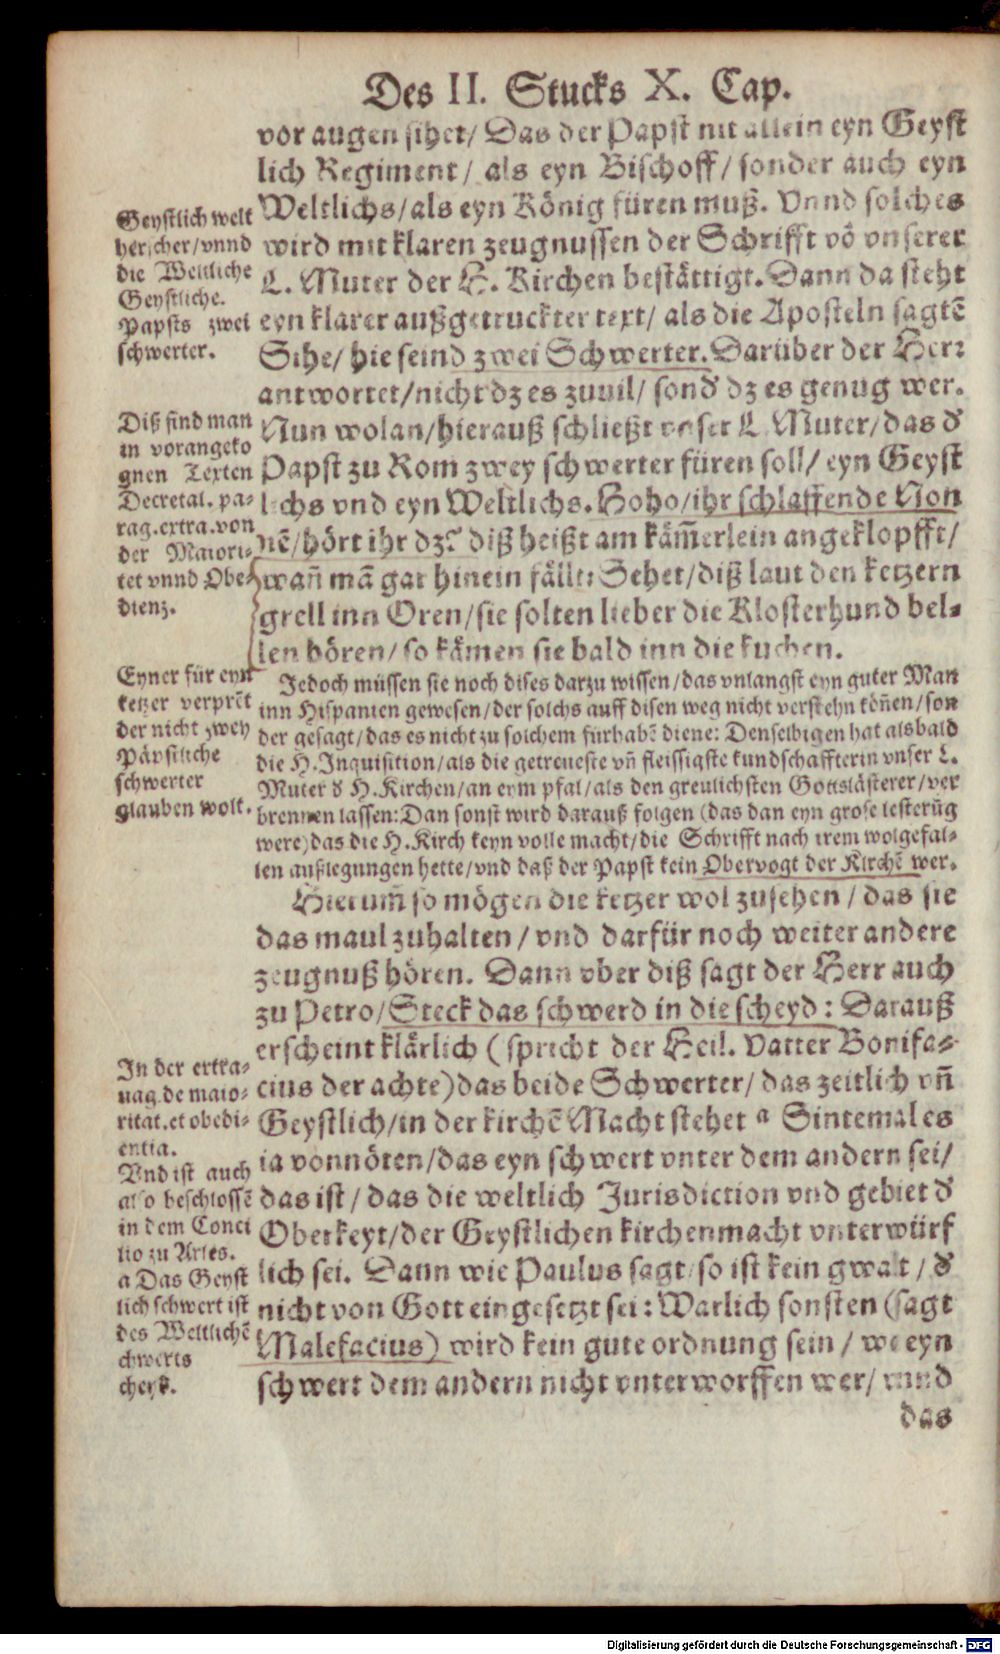 Des II. Stucks X. Cap.
vor augen sihet/ Das der Papst nit allein eyn Geyst
lich Regiment/ als eyn Bischoff/ sonder auch eyn
Weltlichs/als eyn König füren muß. Vnnd solches
wird mit klaren zeugnussen der Schrifft võ vnserer
L. Muter der H. Kirchen bestättigt. Dann da steht
eyn klarer außgetruckter text/ als die Aposteln sagtẽ
Sihe/ hie seind zwei Schwerter. Darüber der Herr
antwortet/nicht dz es zuuil/ sond̕ dz es genug wer.
Nun wolan/hierauß schließt vnser L. Muter/das d̕
Papst zu Rom zwey schwerter füren soll/ eyn Geyst
lichs vnd eyn Weltlichs. Hoho/ihr schlaffende Non
nẽ/hört ihr dz? diß heißt am käm̃erlein angeklopfft/
wañ mã gar hinein fällt: Sehet/diß laut den ketzern
grell inn Oren/sie solten lieber die Klosterhund bel-
len hören/ so kämen sie bald inn die kuchen.
Jedoch müssen sie noch dises darzu wissen/das vnlangst eyn guter Man
inn Hispanien gewesen/der solchs auff disen weg nicht verstehn köñen/son
der gesagt/das es nicht zu solchem fürhabẽ diene: Denselbigen hat alsbald
die H. Inquisition/als die getreueste vñ fleissigste kundschaffterin vnser L.
Muter d̕ H. Kirchen/an eym pfal/als den greulichsten Gottslästerer/ver
brennen lassen: Dan sonst wird darauß folgen (das dan eyn grose lesterũg
were) das die H. Kirch keyn volle macht/die Schrifft nach irem wolgefal-
len außlegungen hette/vnd daß der Papst kein Obervogt der Kirchẽ wer.
Hierum̃ so mögen die ketzer wol zusehen/ das sie
das maul zuhalten/ vnd darfür noch weiter andere
zeugnuß hören. Dann vber diß sagt der Herr auch
zu Petro/Steck das schwerd in die scheyd: Darauß
erscheint klärlich (spricht der Heil. Vatter Bonifa-
cius der achte) das beide Schwerter/ das zeitlich vñ
Geystlich/in der kirchẽ Macht stehet a Sintemal es
ja vonnöten/das eyn schwert vnter dem andern sei/
das ist/ das die weltlich Jurisdiction vnd gebiet d̕
Oberkeyt/der Geystlichen kirchenmacht vnterwürf
lich sei. Dann wie Paulus sagt/so ist kein gwalt/ d̕
nicht von Gott eingesetzt sei: Warlich sonsten (sagt
Malefacius) wird kein gute ordnung sein/ wo eyn
schwert dem andern nicht vnterworffen wer/ vnnd
das
Geystlich welt
herscher/vnnd
die Weltliche
Geystliche.
Papsts zwei
schwerter.
Diß find man
in vorangezo
gnen Texten
Decretal. pa-
rag.extra.von
der Maiori-
tet vnnd Obe-
dienz.
Eyner für eyn
ketzer verprẽt
der nicht zwey
Päpstliche
schwerter
glauben wolt.
In der extra-
uag. de maio-
ritat. et obedi-
entia.
Vnd ist auch
also beschlossẽ
in dem Conci
lio zu Arles.
a Das Geyst
lich schwert ist
des Weltlichẽ
chwerts
cheyd.
Digitalisierung gefördert durch die Deutsche Forschungsgemeinschaft - DFG